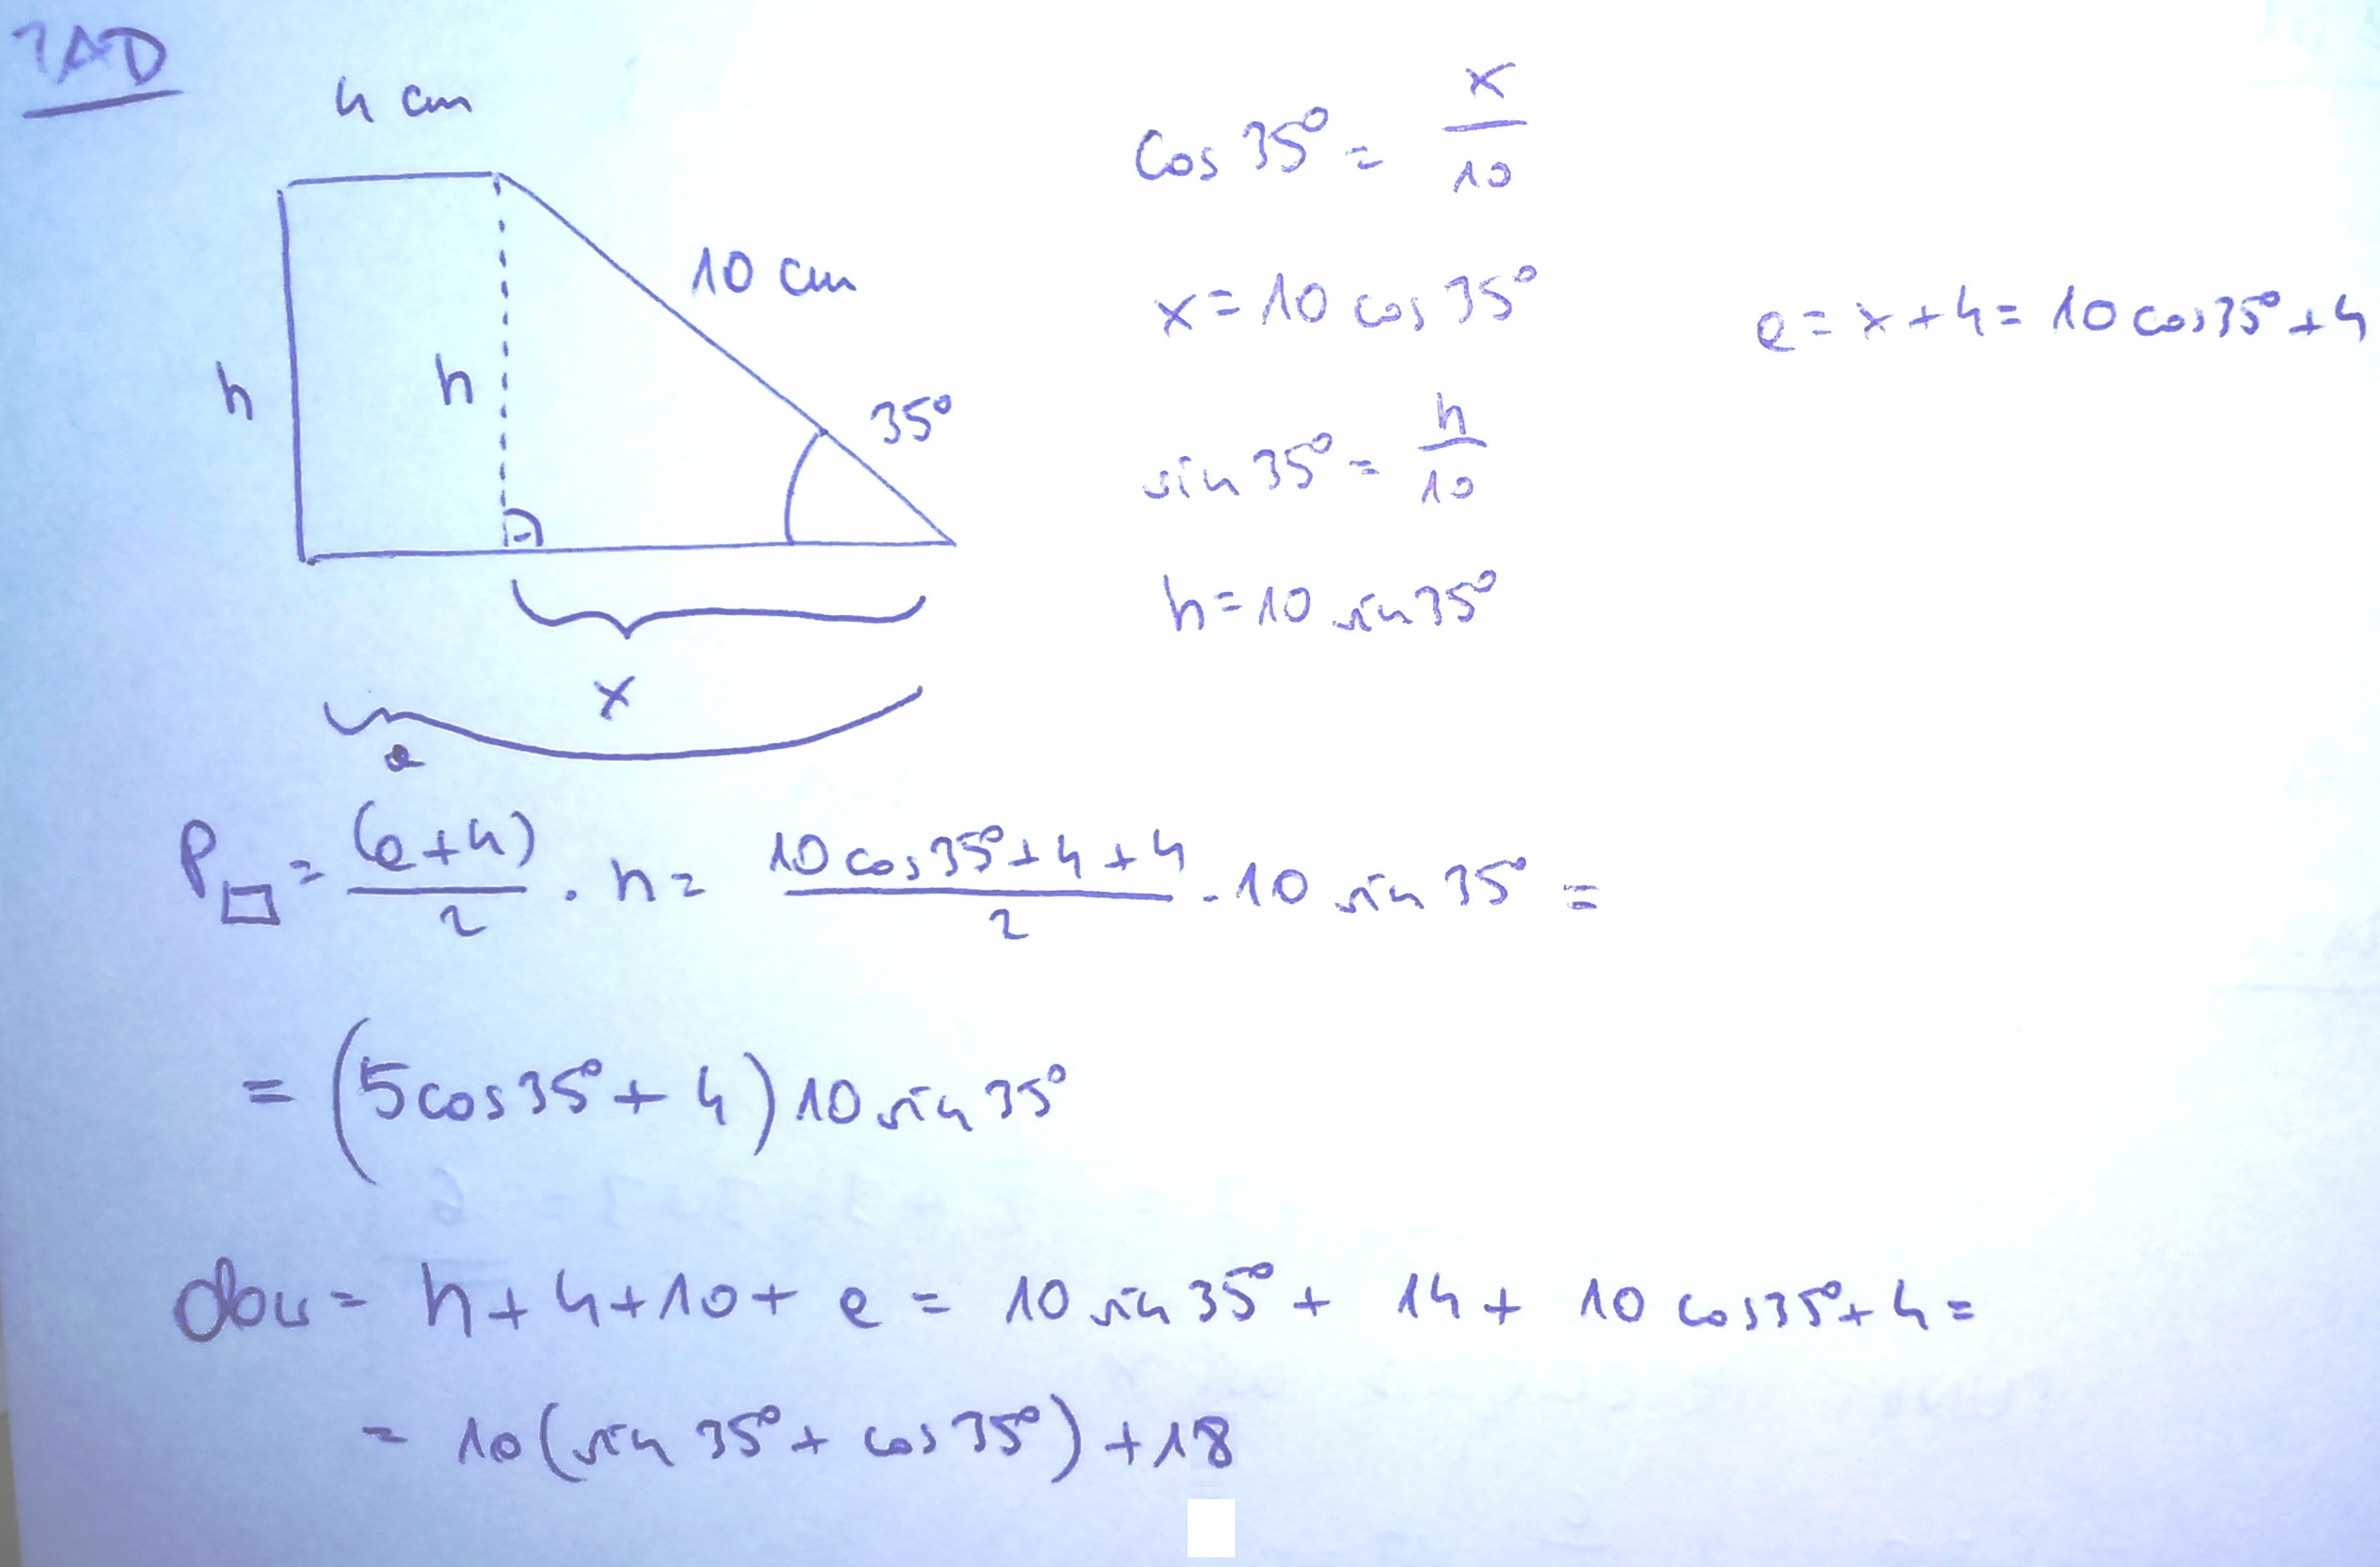 ZAD
4 cm
10 cm
h
h
35°
x
e
cos 35° = x/10
x = 10 cos 35°
e = x + 4 = 10 cos 35° + 4
sin 35° = h/10
h = 10 sin 35°
P□ = (e+4)/2 · h = (10 cos 35° + 4 + 4)/2 · 10 sin 35° =
= (5 cos 35° + 4) 10 sin 35°
obw = h + 4 + 10 + e = 10 sin 35° + 14 + 10 cos 35° + 4 =
= 10 (sin 35° + cos 35°) + 18